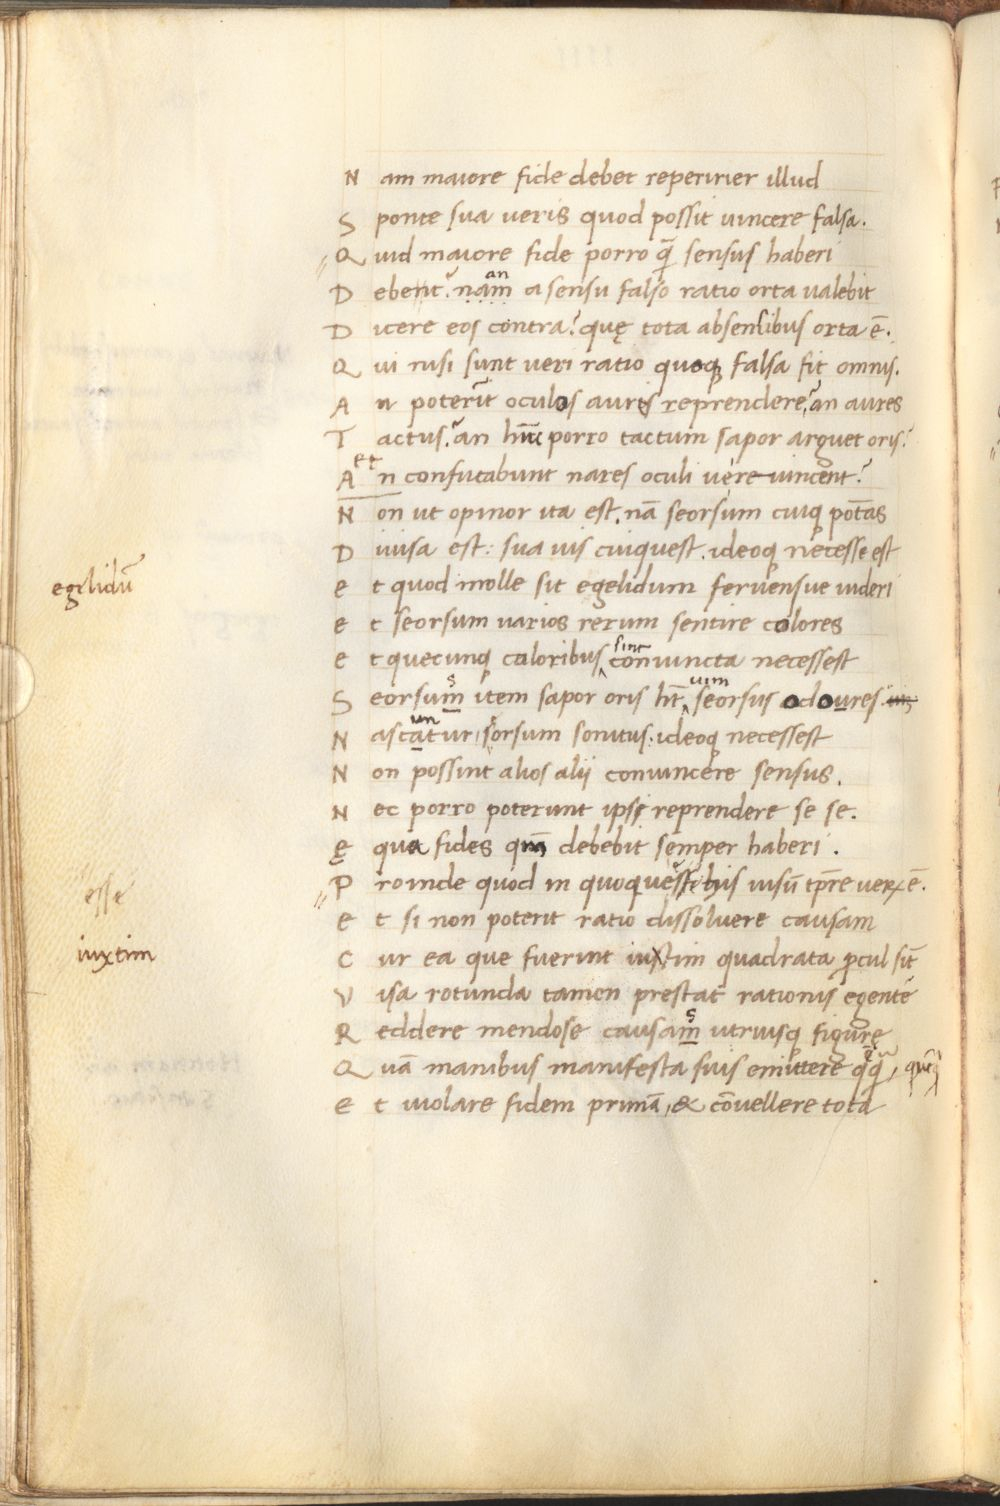 Nam maiore fide debet reperirier illud
Sponte sua veris quod possit vincere falsa.
Quid maiore fide porro q̄ sensus haberi
an
Debent? nam a sensu falso ratio orta valebit
Dicere eos contra? quę tota absensibus orta ē.
Qui nisi sunt veri ratio quoq; falsa fit omnis.
An poterit oculos aures reprendere? an aures
Tactus? an hūc porro tactum sapor arguet oris?
et
An confutabunt nares oculi vere vincent?
Non ut opinor ita est. nā seorsum cuiq; potās
Divisa est: sua vis cuiquest. ideoq; necesse est
egelidū
et quod molle sit egelidum fervensve videri
et seorsum varios rerum sentire colores
sint
et quecunq; coloribus conviuncta necessest
s uim
Seorsum item sapor oris ht̄ seorsus odoures.
un
Nascatur, sorsum sonitus: ideoq; necessest
Non possint alios alii convincere sensus.
Nec porro poterunt ipsi reprendere se se.
Ęqua fides qm̄ debebit semper haberi.
esse
Proinde quod in quoquest his visū tp̄re verx ē.
et si non poterit ratio dissolvere causam
iuxtim
Cur ea que fuerint iuxtim quadrata procul sīt
Visa rotunda tamen prestat rationis egentē
s
Reddere mendose causam utriusq; figurę
Quā manibus manifesta suis emittere
et violare fidem primā, & cōvellere tota